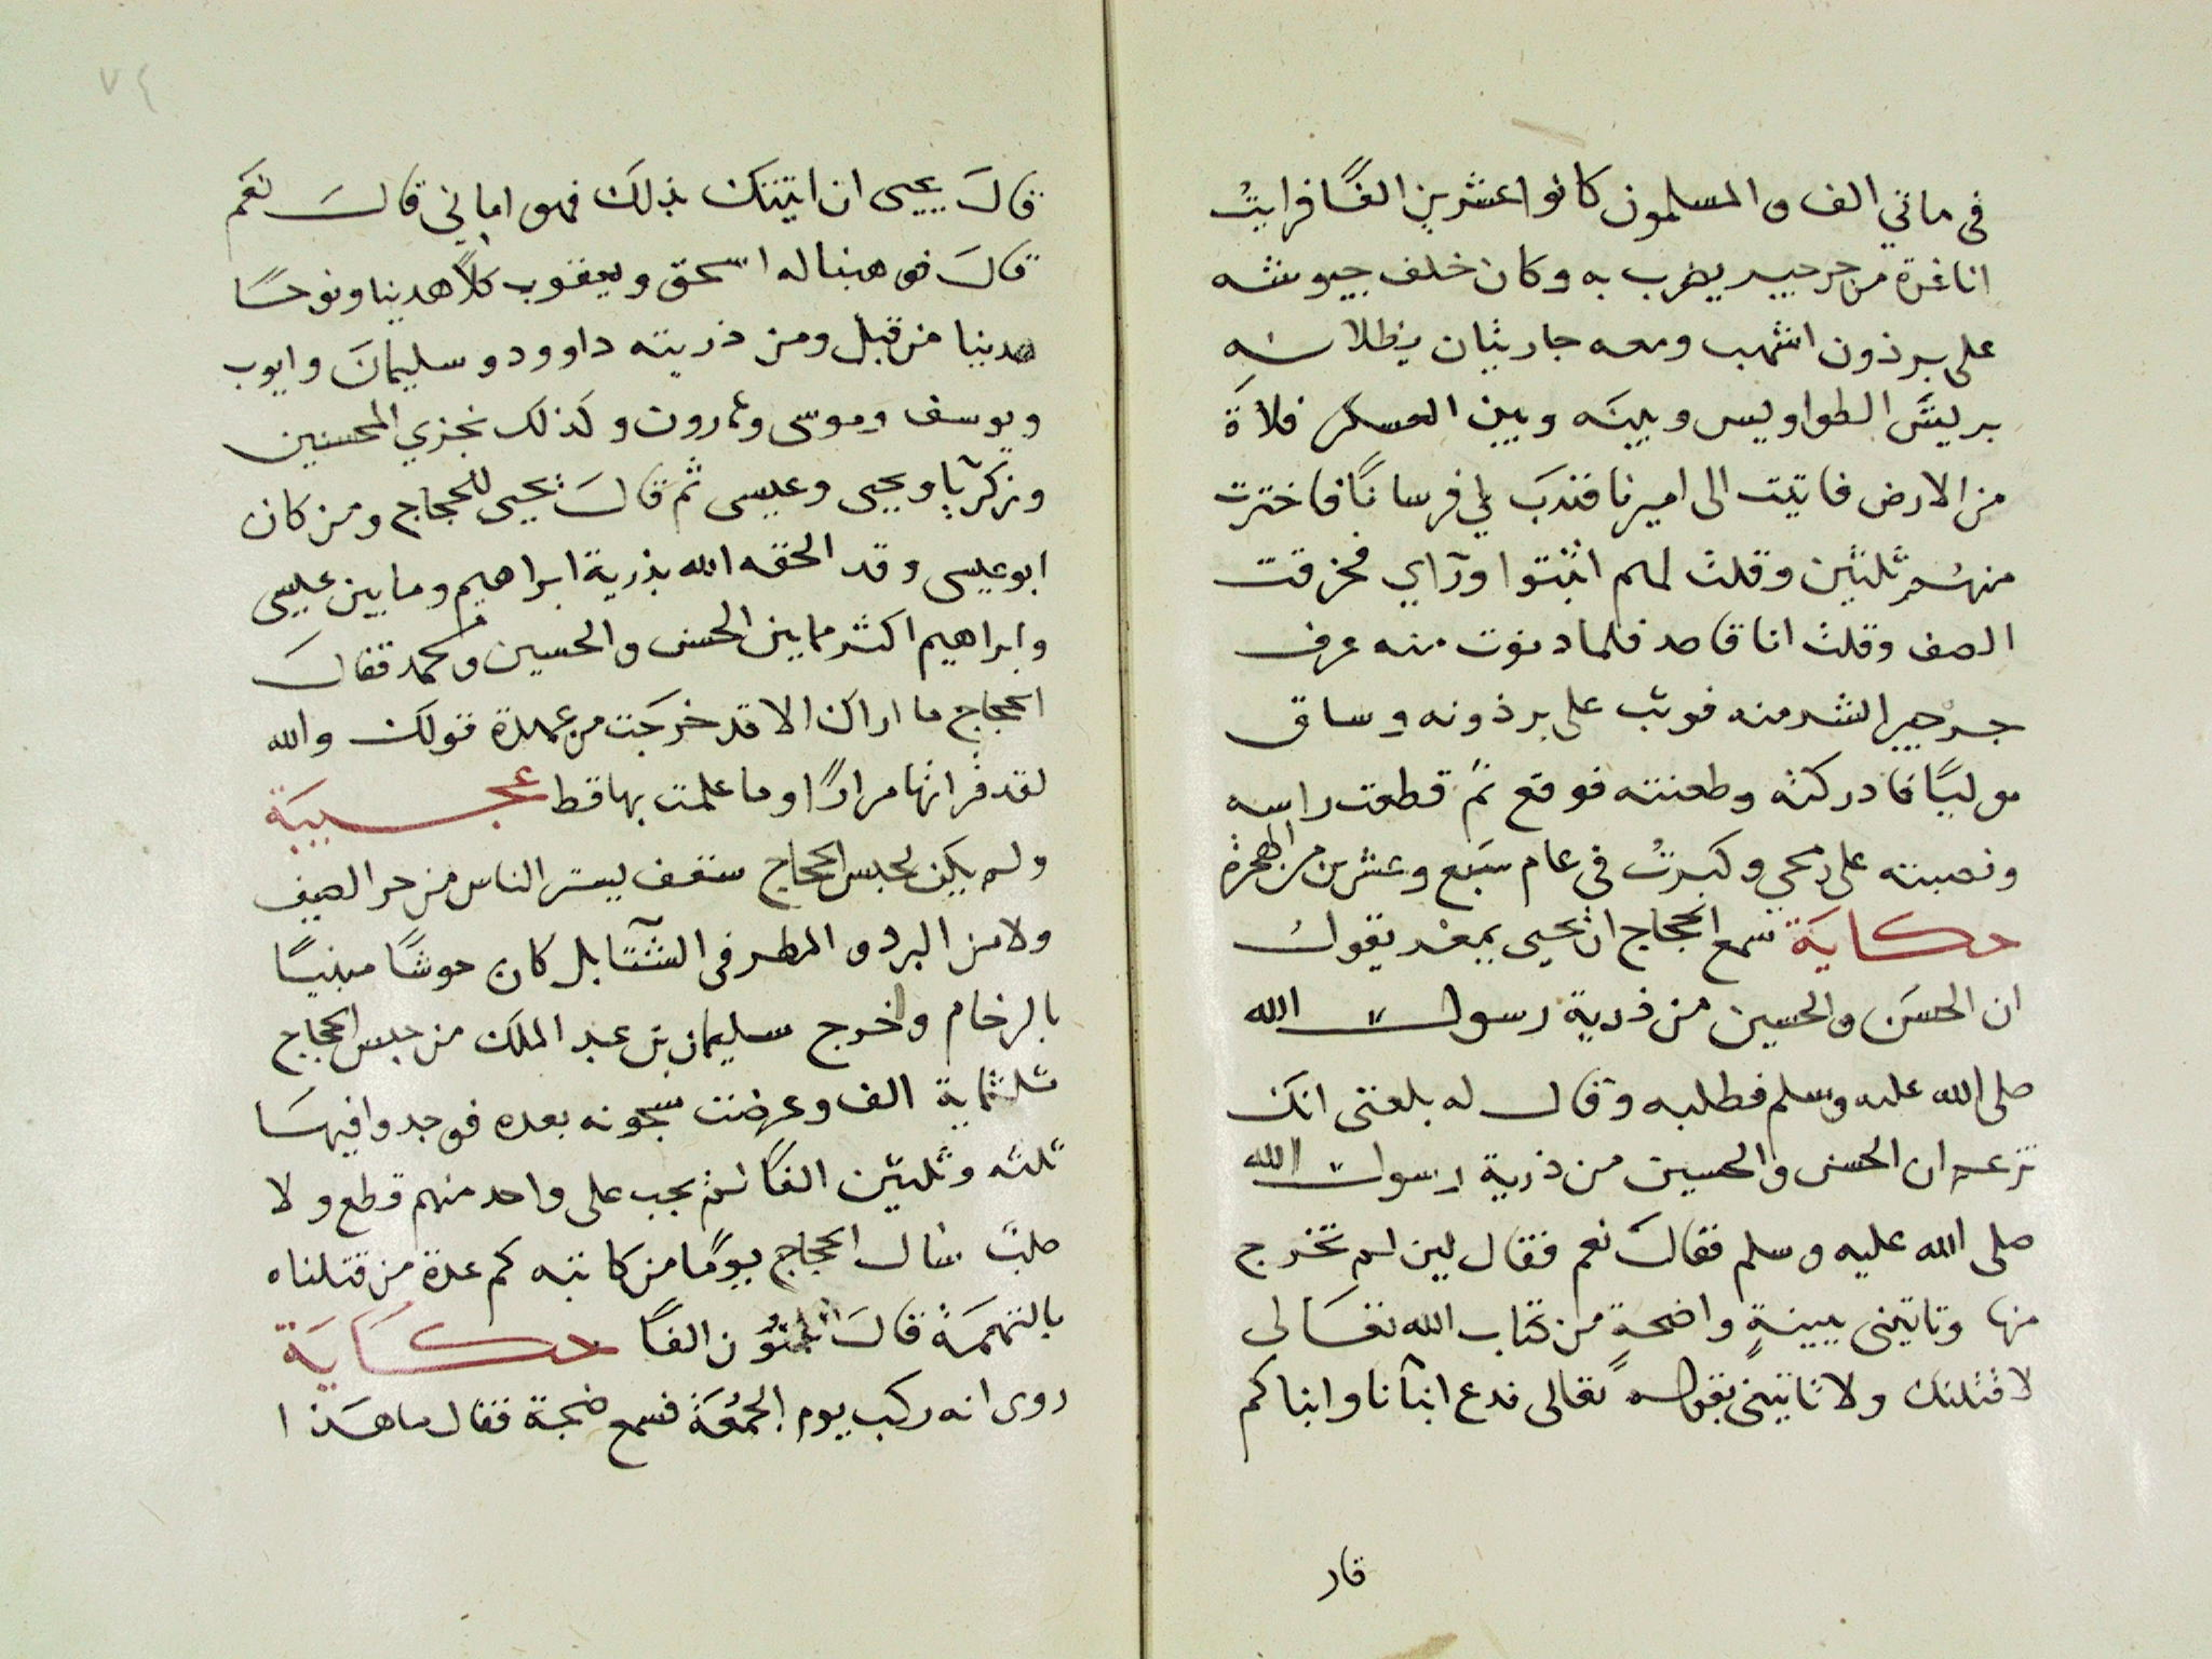 في ماتي الف والمسلمون كانوا عشرين الفًا فرايتُ
انا غرة من جرجير يضرب به وكان خلف جيوشه
على برذون اشهب ومعه جاريتان يظلانه
بريش الطواويس وبينه وبين العسكر فلاة
من الارض فاتيت الى اميرنا فندبَ لي فرسانًا فاخترت
منهم ثلثين وقلت لهم اثبتوا وراي فخرقت
الصف وقلت انا قاصد فلما دنوت منه عرف
جرجير الشر منه فوثب على برذونه وساق
موليًا فادركته وطعنته فوقع ثم قطعت راسه
ونصبته على رمحي وكبرتُ في عام سَبع وعشرين من الهجرة
حكايَة سمع الحجاج ان يحيى بن يعمر يقول
ان الحسَن والحسين من ذرية رسول الله
صلى الله عليه وسلم فطلبه وقال له بلغنى انك
تزعم ان الحسن والحسين من ذرية رسول الله
صلى الله عليه وسلم فقالَ نعم فقال لين لم تخرج
منها وتاتينى ببينةٍ واضحةٍ من كتاب الله تعَالى
لاقتلنك ولا تاتينى بقوله تعالى ندع ابنآنا وابناكم
قال
٧٤
قالَ يحيى ان اتيتك بذلك فهو امانى قالَ نعَم
قالَ فوهبنا له اسحق ويعقوب كلاً هدينا ونوحًا
هدينا من قبل ومن ذريته داوود وسليمانَ وايوب
ويوسف وموسى وهارون وكذلك نجزي المحسنين
وزكريا ويحيى وعيسى ثم قالَ يحيى للحجاج ومن كان
ابو عيسى وقد الحقه الله بذرية ابراهيم وما بين عيسى
وابراهيم اكثر مما بين الحسن والحسين ومحمد فقالَ
الحجاج ما اراك الا قد خرجَت من عهدة قولك والله
لقد قراتها مرارًا وما علمت بها قط عجيبَة
ولم يكن لحبس الحجاج سقف يستر الناس من حر الصيف
ولا من البرد والمطر في الشتآ بل كان حوشًا مبنيًا
بالرخام واخرج سليمان بن عبد الملك من حبس الحجاج
ثلثماية الف وعرضت سجونه بعده فوجدوا فيهَا
ثلثه وثلثين الفًا لم يجب على واحد منهم قطع ولا
صلبٌ سَال الحجاج يومًا من كاتبه كم عدة من قتلناه
بالتهمَة قالَ ثمنون الفًا حكَايَة
روى انه ركب يوم الجمُعَة فسمع ضجة فقال ما هَذا